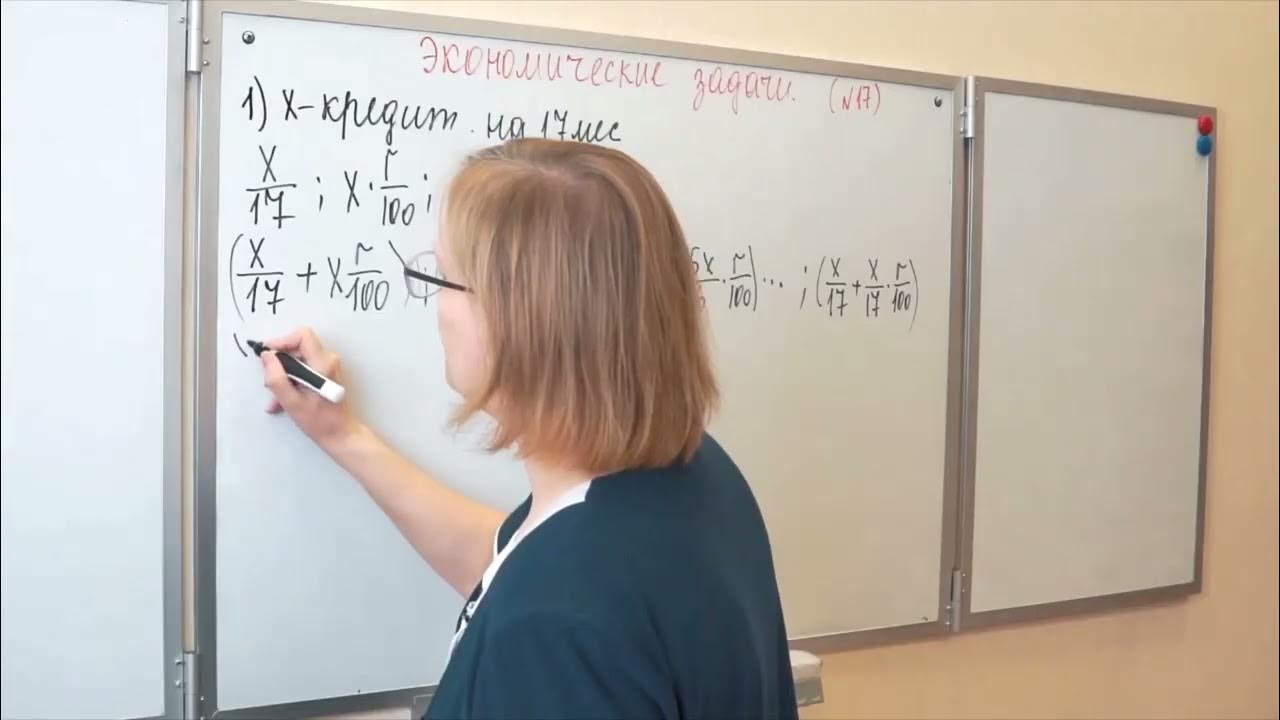 Экономические задачи. (№17)
1) X-кредит на 17 мес
X/17 ; X · r/100 ;
(X/17 + X r/100) ; x/ · r/100) ... ; (X/17 + X/17 · r/100)